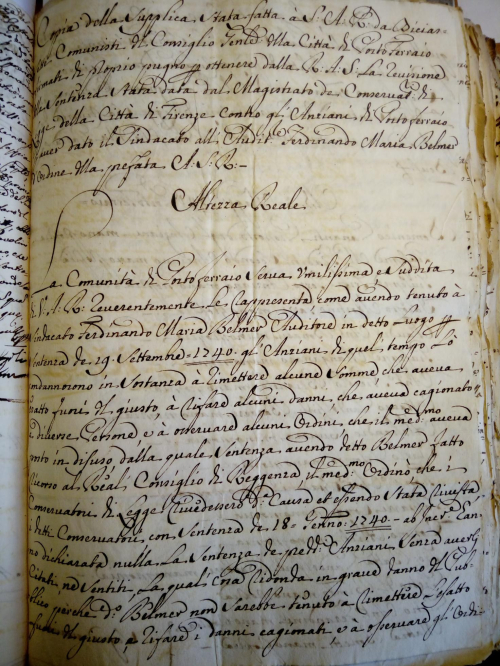 Copia della Supplica Stata fatta a S. A. R. da Dician-
Comunisti del Consiglio Gente della Città di Portoferraio
di proprio pugno p ottenere dalla R. A. S. La Revisione
Sentenza Stata data dal Magistrato de Conservat. di
della Città di Firenze contro gl' Anziani di Portoferraio
aver dato il Sindacato all' Audit.re Ferdinando Maria Belmer
d'ordine della prefata A. S. R.-
Altezza Reale
La Comunità di Portoferraio Serva Umilissima e Suddita
V. A. R. reverentemente Le rappresenta come avendo tenuto à
Sindacato Ferdinando Maria Belmer Auditore in detto Luogo p
Sentenza de 29. Settembre 1740. gl' Anziani di quel tempo Lo
condannorono in Sostanza à rimettere alcune Somme che aveva
fuori del giusto, à rifare alcuni danni, che aveva cagionato
à diverse Persone e à osservare alcuni Ordini, che il med.mo aveva
in disuso, dalla quale Sentenza avendo detto Belmer fatto
ricorso al Real' Consiglio di Reggenza, il med.mo ordinò che i
Conservatori di Legge rivedessero d.a Causa et essendo Stata rivista
detti Conservatori, con Sentenza de 18. Genn.o 1740.
dichiarata nulla La Sentenza de pred.i Anziani Senza averli
Citati, ne Sentiti, La qual' Cosa ridonda in grave danno del Pub-
blico perche d.o Belmer non Sarebbe tenuto à rimettere
fuori del giusto, à rifare i danni cagionati e à osservare gl' Ordi-